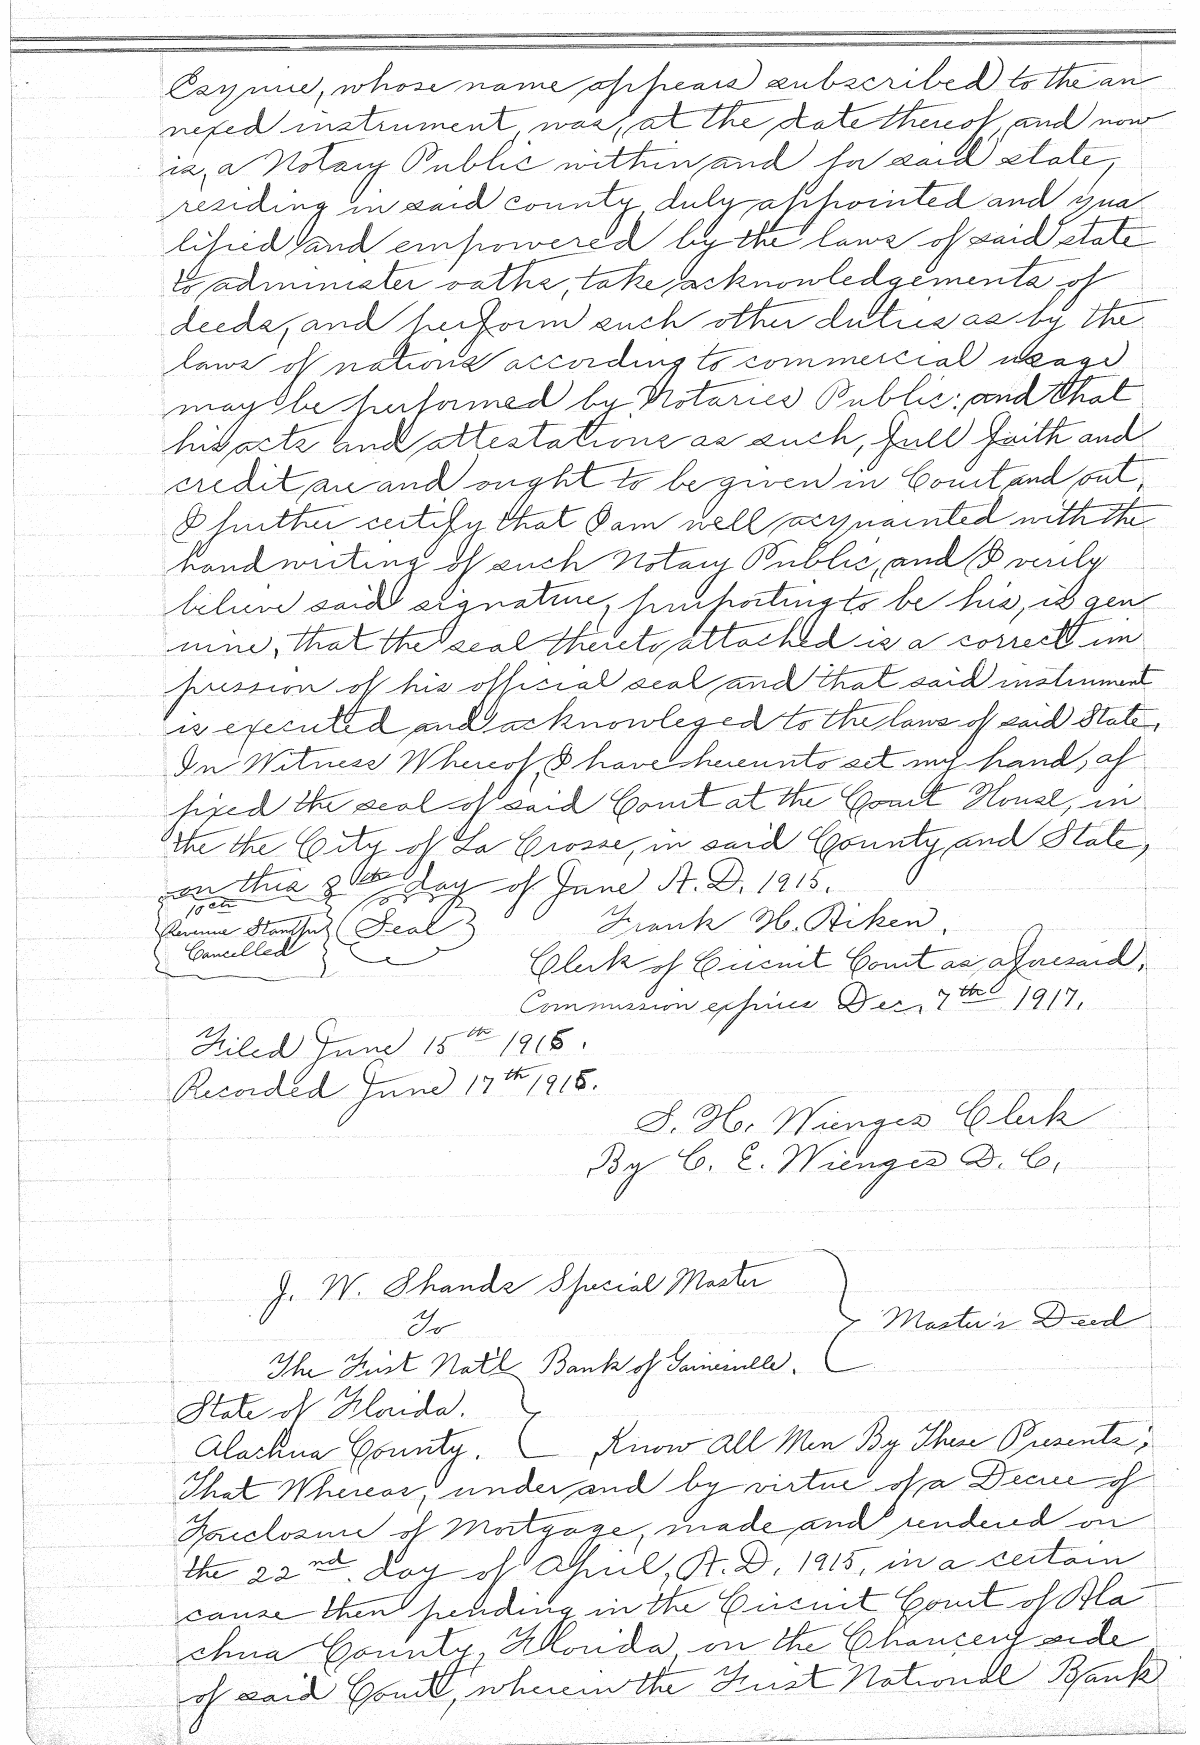 Esquire, whose name appears subscribed to the an
nexed instrument, was, at the date thereof, and now
is, a Notary Public within and for said state,
residing in said county, duly appointed and qua
lified and empowered by the laws of said state
to administer oaths, take acknowledgements of
deeds, and perform such other duties as by the
laws of nations according to commercial usage
may be performed by Notaries Public: and that
his acts and attestations as such, full faith and
credit are and ought to be given in Court and out,
I further certify that I am well acquainted with the
handwriting of such Notary Public, and I verily
believe said signature, purporting to be his, is gen
uine, that the seal thereto attached is a correct im
pression of his official seal and that said instrument
is executed and acknowleged to the laws of said State,
In Witness Whereof, I have hereunto set my hand, af
fixed the seal of said Court at the Court House, in
the the City of La Crosse, in said County and State,
on this 8th day of June A. D. 1915.
10cts
Revenue Stamps
Cancelled
Seal
Frank H. Aiken,
Clerk of Circuit Court as aforesaid,
Commission expires Dec. 7th 1917.
Filed June 15th 1915.
Recorded June 17th 1915.
S. H. Wienges Clerk
By C. E. Wienges D. C.
J. W. Shands Special Master
To
The First Nat'l Bank of Gainesville.
Master's Deed
State of Florida.
Alachua County.
Know All Men By These Presents;
That Whereas, under and by virtue of a Decree of
Foreclosure of Mortgage, made and rendered on
the 22nd. day of April, A. D. 1915, in a certain
cause then pending in the Circuit Court of Ala
chua County, Florida, on the Chancery side
of said Court, wherein the First National Bank